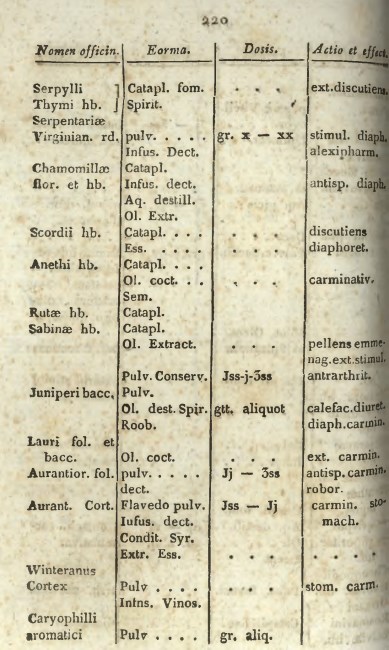 220
Nomen officin. Eorma. Dosis. Actio et effect.
Serpylli Catapl. fom. . . . ext.discutiens.
Thymi hb. Spirit.
Serpentariæ
Virginian. rd. pulv. . . . . gr. x — xx stimul. diaph.
Infus. Dect. alexipharm.
Chamomillæ Catapl.
flor. et hb. Infus. dect. antisp. diaph.
Aq. destill.
Ol. Extr.
Scordii hb. Catapl. . . . . . . discutiens
Ess. . . . . . . . . diaphoret.
Anethi hb. Catapl. . . .
Ol. coct. . . . . . . carminativ.
Sem.
Rutæ hb. Catapl.
Sabinæ hb. Catapl.
Ol. Extract. . . . pellens emme-
nag.ext.stimul.
Pulv. Conserv. Jss-j-3ss antrarthrit.
Juniperi bacc. Pulv.
Ol. dest. Spir. gtt. aliquot calefac.diuret.
Roob. diaph.carmin.
Lauri fol. et
bacc. Ol. coct. . . . ext. carmin.
Aurantior. fol. pulv. . . . . Jj — 3ss antisp.carmin.
dect. robor.
Aurant. Cort. Flavedo pulv. Jss — Jj carmin. sto-
Iufus. dect. mach.
Condit. Syr.
Extr. Ess. . . . . . . .
Winteranus
Cortex Pulv . . . . . . . stom. carm.
Intns. Vinos.
Caryophilli
aromatici Pulv . . . . gr. aliq.